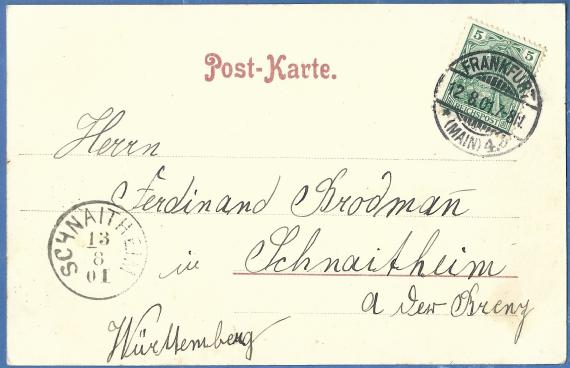 Post-Karte.
5 5
FRANKFURT
12.8.01.7-8N.
REICHSPOST
* (MAIN) 4.
Herrn
Ferdinand Brodman̄
in Schnaitheim
a der Brenz
Württemberg
SCHNAITHEIM
13
8
01